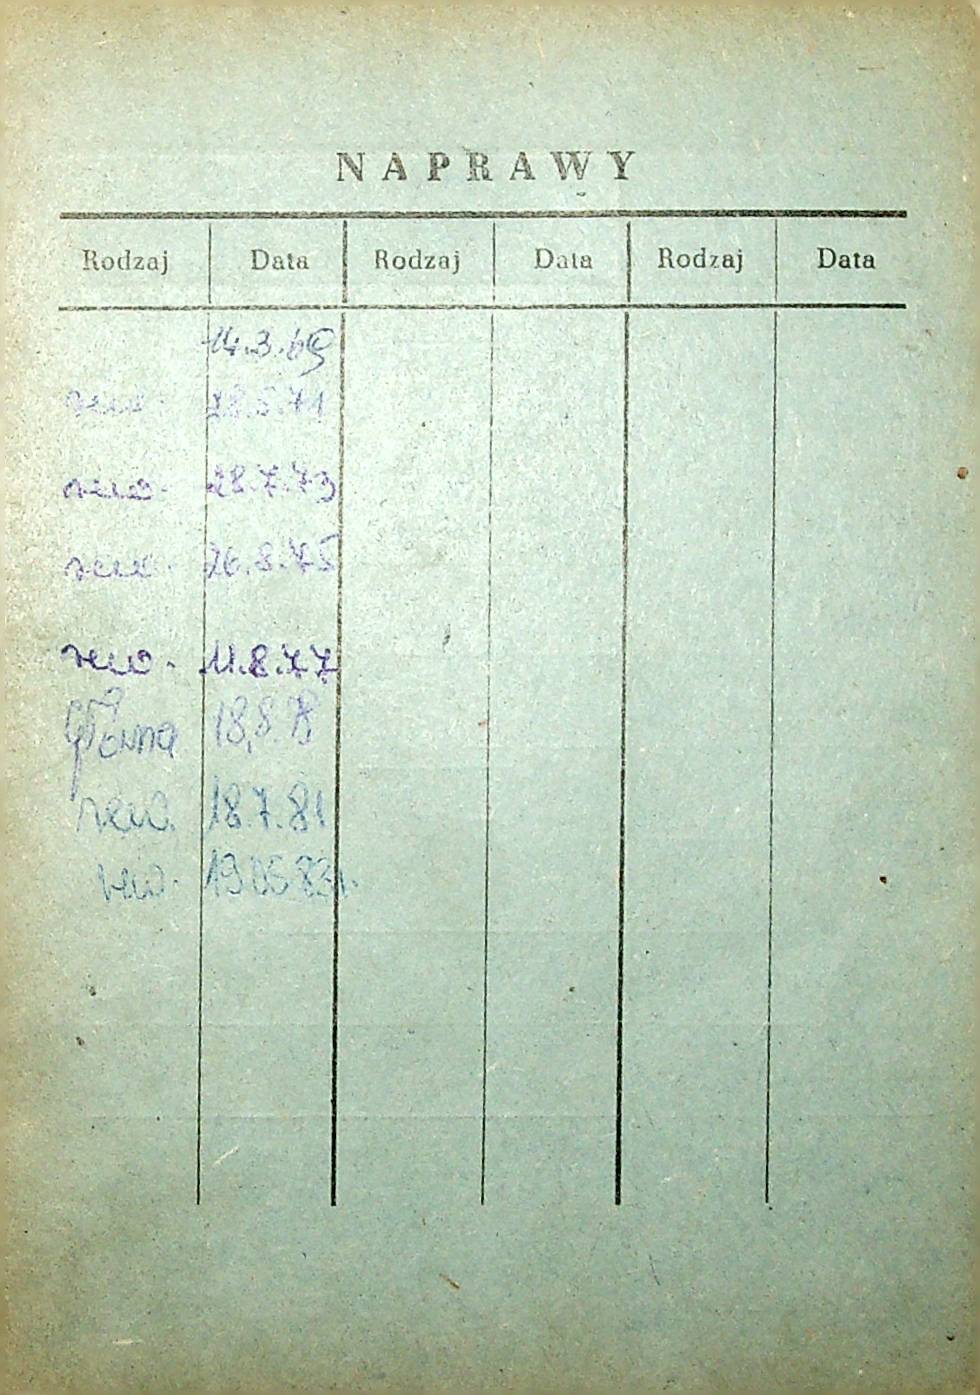 NAPRAWY
Rodzaj Data Rodzaj Data Rodzaj Data
14.3.69
rew. 28.5.71
rew. 28.7.73
rew. 26.8.75
rew. 11.8.77
główna 18,8.78
rew. 18.7.81
rew. 19 05 83r.